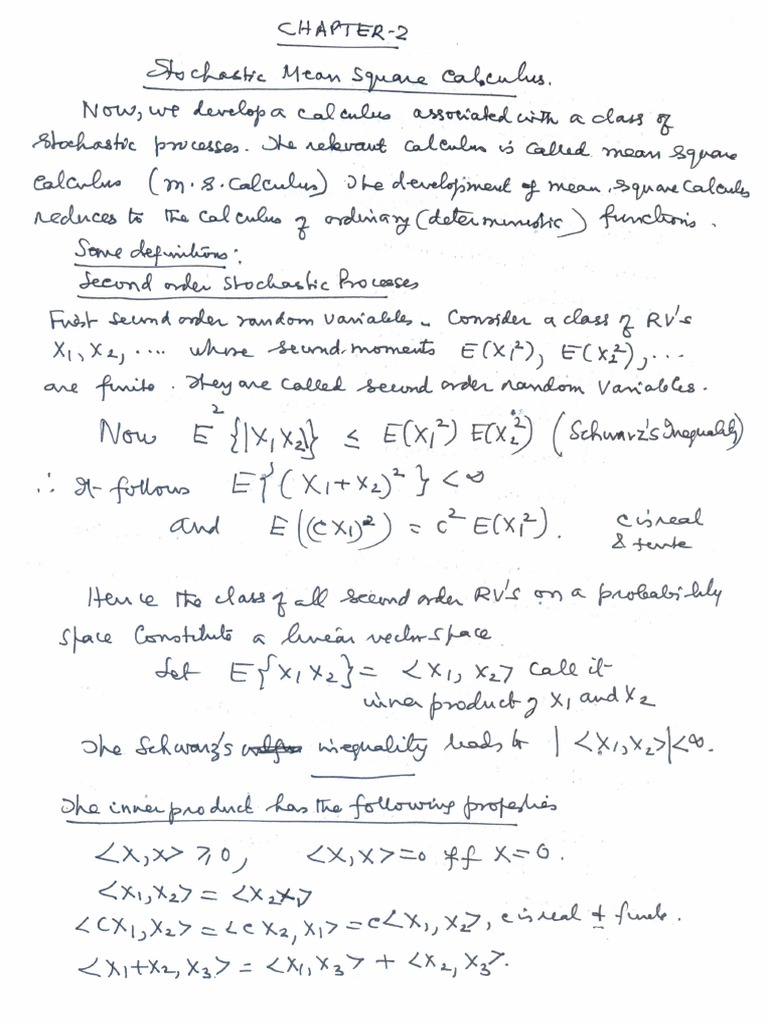 CHAPTER-2
Stochastic Mean Square Calculus.
Now, we develop a calculus associated with a class of
stochastic processes. The relevant calculus is called mean square
calculus (m.s. calculus) The development of mean square calculus
reduces to the calculus of ordinary (deterministic) functions.
Some definitions:
Second order stochastic Processes
First second order random variables. Consider a class of RV's
X₁, X₂, .... whose second moments E(X₁²), E(X₂²), ...
are finite. They are called second order random variables.
Now E²{|X₁X₂|} ≤ E(X₁²) E(X₂²) (Schwarz's Inequality)
∴ It follows E{(X₁+X₂)²} < ∞
and E((CX₁)²) = c² E(X₁²). c is real
&
Hence the class of all second order RV's on a probability
space constitute a linear vector space
Let E{X₁X₂} = <X₁, X₂> call it
inner product of X₁ and X₂
The Schwarz's inequality leads to |<X₁,X₂>|<∞.
The inner product has the following properties
<X,X> ≥ 0, <X,X>=0 iff X=0.
<X₁,X₂> = <X₂X₁>
<CX₁,X₂> = <CX₂,X₁> = c<X₁,X₂>, c is real & finite.
<X₁+X₂,X₃> = <X₁,X₃> + <X₂,X₃>.